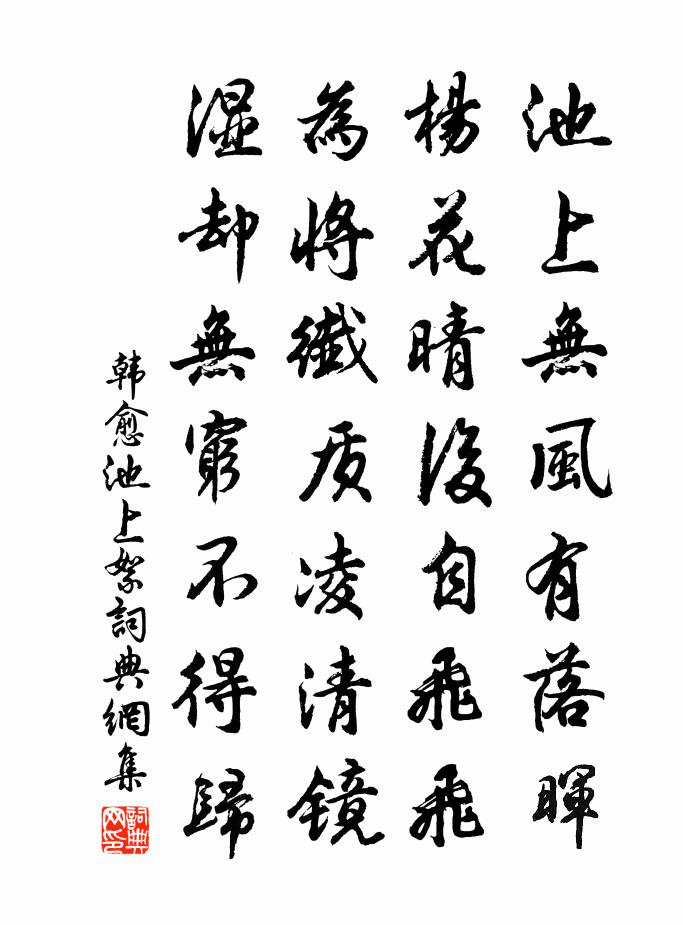 池上無風有落暉
楊花晴後自飛飛
為將纖质凌清镜
湿却無窮不得歸
韩愈池上絮詞典網集
詞典网印